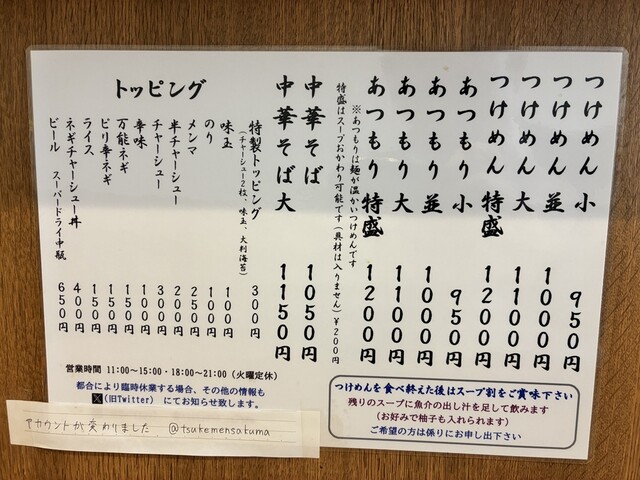 つけめん 小 950円
つけめん 並 1000円
つけめん 大 1100円
つけめん 特盛 1200円
あつもり 小 950円
あつもり 並 1000円
あつもり 大 1100円
あつもり 特盛 1200円
※あつもりは麺が温かいつけめんです
特盛はスープおかわり可能です(具材は入りません)¥200円
中華そば 1050円
中華そば大 1150円
トッピング
特製トッピング 300円
(チャーシュー2枚、味玉、大判海苔)
味玉 100円
のり 100円
メンマ 250円
半チャーシュー 200円
チャーシュー 300円
辛味 100円
万能ネギ 150円
ピリ辛ネギ 150円
ライス 150円
ネギチャーシュー丼 400円
ビール スーパードライ中瓶 650円
営業時間 11:00~15:00・18:00~21:00(火曜定休)
都合により臨時休業する場合、その他の情報も
X(旧Twitter) にてお知らせ致します。
アカウントが変わりました @tsukemensakuma
つけめんを食べ終えた後はスープ割をご賞味下さい
残りのスープに魚介の出し汁を足して飲みます
(お好みで柚子も入れられます)
ご希望の方は係りにお申し出下さい